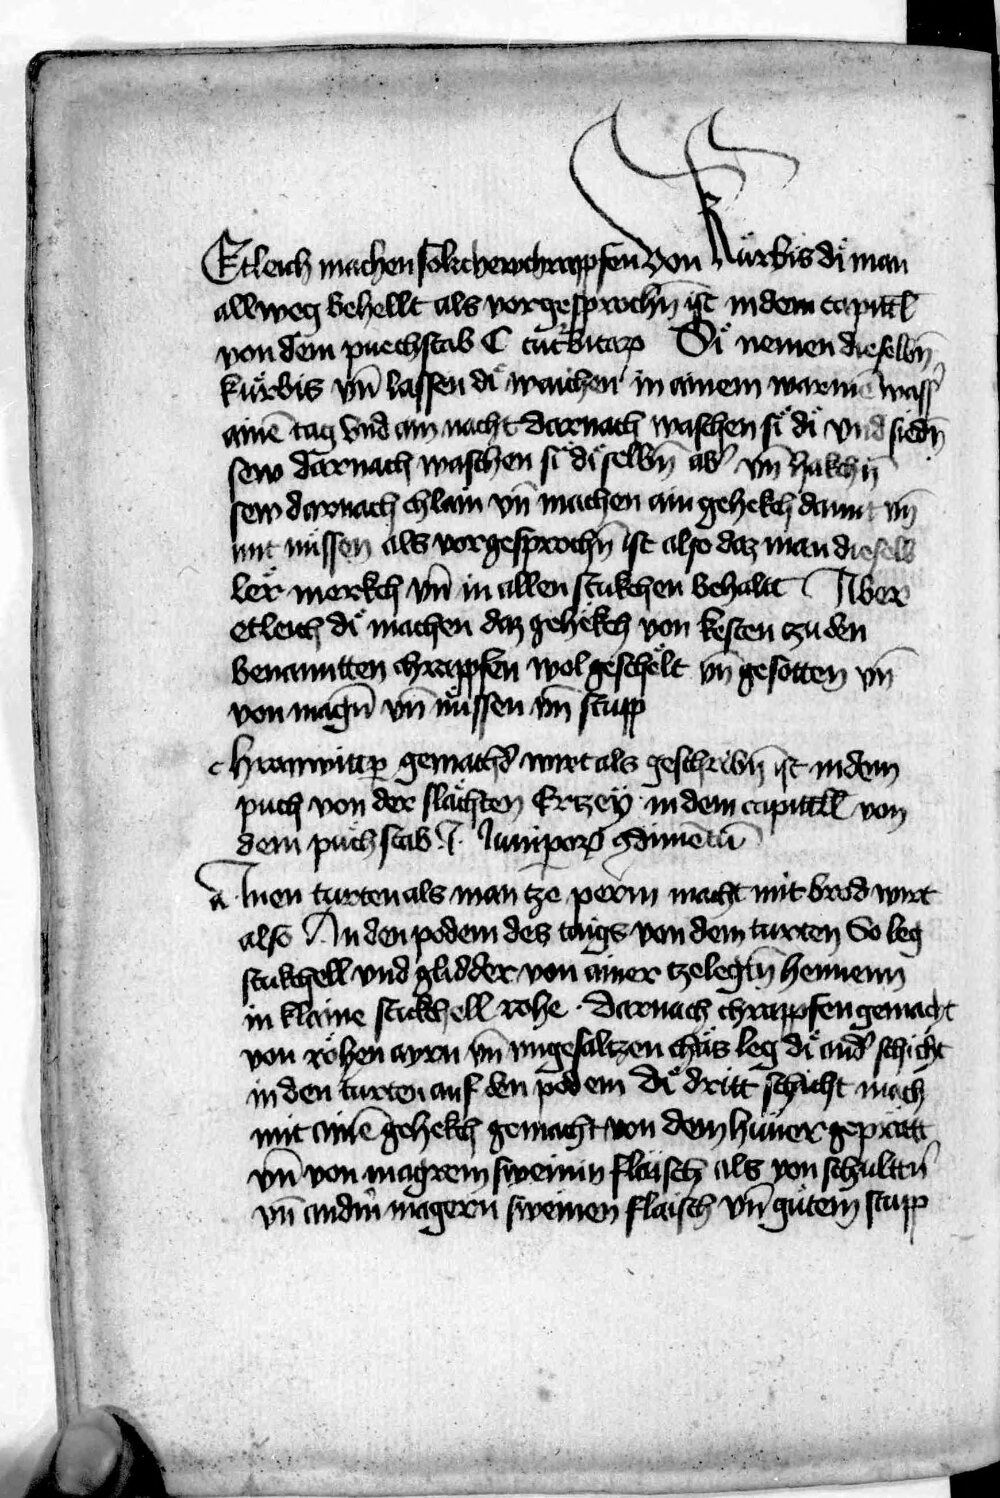 Etleich machen solicher chrappfen von Kürbis di man
allweg behellt als vorgesprochn̄ ist in dem capitl̄
von dem puechstab C cucurbitar̄ Di nemen dieselbn̄
kürbis vn̄ lassen di waichen in ainem warmē wass̾
ainē tag vnd ain nacht darnach waschen si di vnd siedn̄
sew darnach waschen si di selbn̄ ab̾ vn̄ hakchn̄
sew darnach chlain vn̄ machen ain gehekch damit vn̄
mit nüssen als vorgesprochn̄ ist also daz man dieselb
ler merkch vn̄ in allen stukchen behalt Aber
etleich di machen daz gehekch von kesten tzu den
benannten chrappfen wol geschelt vn̄ gesotten vn̄
von magn̄ vn̄ nüssen vn̄ stupp
chranwitp̄ gemachd̾ wirt als geschribn̄ ist in dem
puch von der slächten Ertzey in dem capitll̄ von
dem puchstab .I. Juniperȝ
a Inen turten als man tze perñ macht mit brod wirt
also An den podem des taigs von dem turten So leg
stukchell vnd glidder von ainer tzelegtn̄ hennenn
in klaine stukchell rohe . darnach chrappfen gemacht
von röhen ayrn vn̄ vngesaltzen chäs leg di and̾ schicht
in den turten auf den podem di dritt schicht mach
mit ainē gehekch gemacht von dem hüner geprätt
vn̄ von magrem sweinin flaisch als von schultt̾n
vn̄ andm̾ magern sweinen flaisch vn̄ gutem stupp